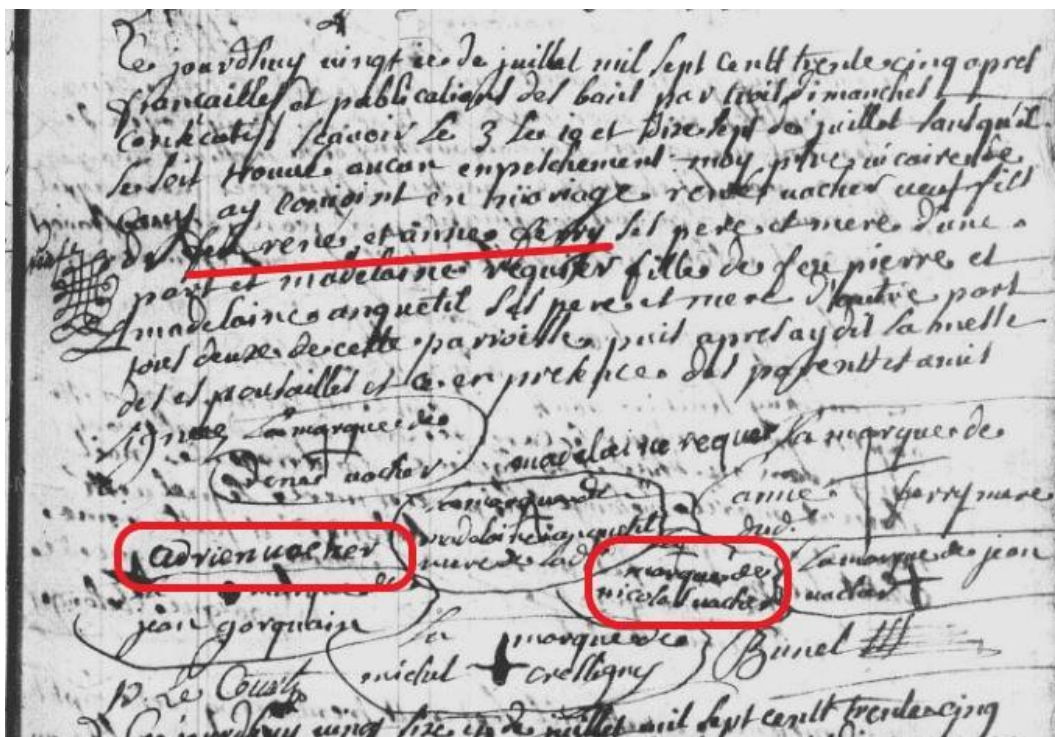 Ce jourdhuy vingt de juillet mil sept centt trente cinq apres
fiancailles et publications des bans par trois dimanches
consecutifs scavoir le 3 le 10 et dixsept de juillet sans qu'il
se soit trouvé aucun enpeschement moy prre vicaire de
Cany ay conioint en mariage vacher veuf fils
de feu rene et anne ferry ses pere et mere d'une
part et madelaine requier fille de feu pierre et
madelaine anquetil ses pere et mere d'autre part
tous deux de cette parroisse puis apres ay dit la messe
des espousailles et ce en presence des parents et amis
signez la marque de
vacher
madelaine requier la marque de
anne ferry mere
dud.
la marque de
madelaine anquetil
mere de lad.
adrien vacher
marque de
nicolas vacher
la marque de jean
vacher
marque de
jean
la marque de
michel
Bunel
p. Le Court
Ce jourdhuy vingt six de juillet mil sept centt trente cinq